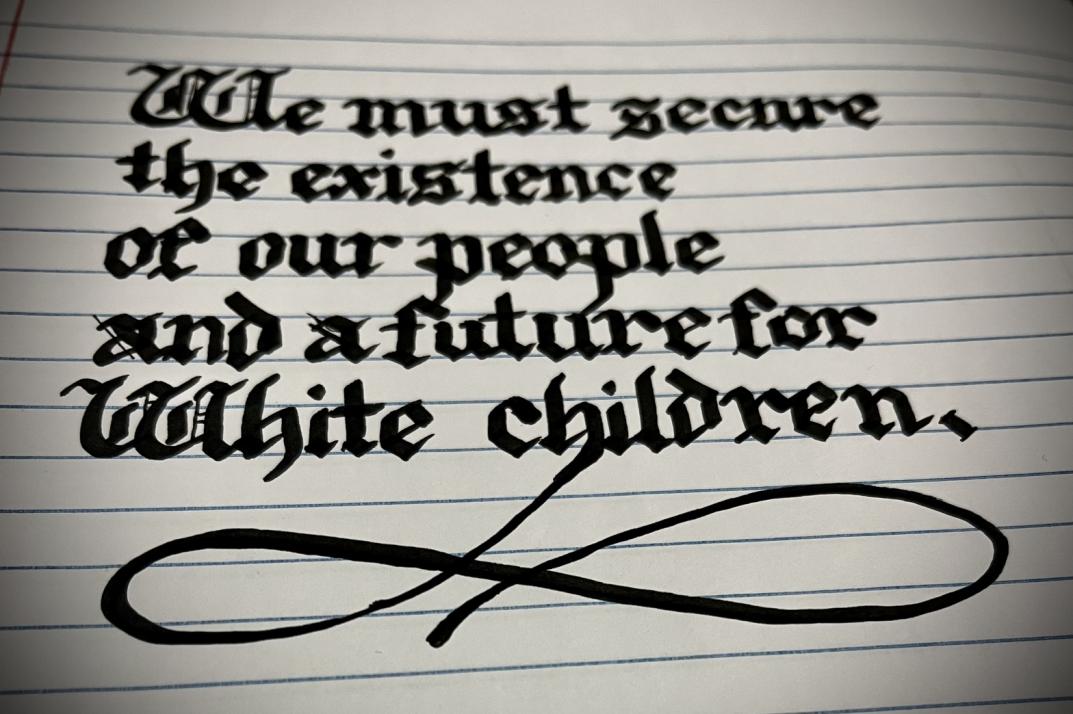 We must secure
the existence
of our people
and a future for
White children.